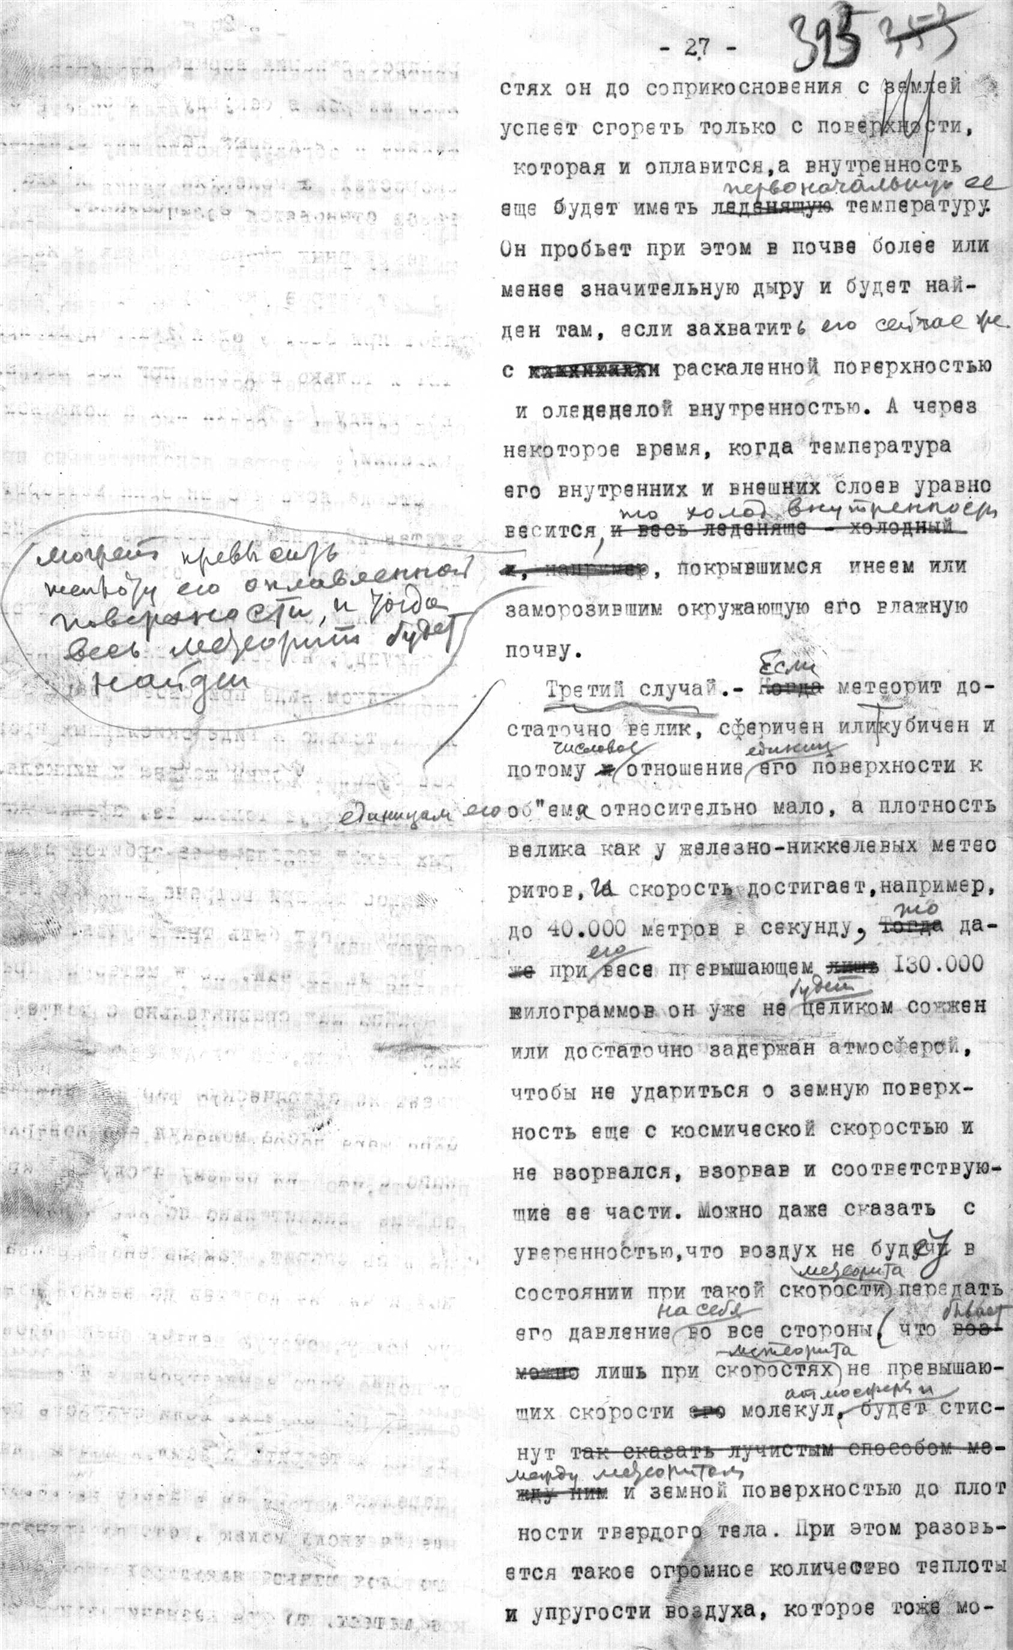 - 27 -
395 353
стях он до соприкосновения с землей
успеет сгореть только с поверхности,
которая и оплавится,а внутренность
первоначальную ее
еще будет иметь леденящую температуру.
Он пробьет при этом в почве более или
менее значительную дыру и будет най-
ден там, если захватить его сейчас же
с раскаленной поверхностью
и оледеделой внутренностью. А через
некоторое время, когда температура
его внутренних и внешних слоев уравно
то холод внутренности
весится, и весь леденяще - холодный
может превысить
теплоту его оплавленной
поверхности, и тогда
весь метеорит будет
найден
и, например, покрывшимся инеем или
заморозившим окружающую его влажную
почву.
Если
Третий случай.- Когда метеорит до-
статочно велик, сферичен или кубичен и
числовое единиц
потому и отношение его поверхности к
единицам его об"ема относительно мало, а плотность
велика как у железно-никкелевых метео
ритов, и скорость достигает,например,
то
до 40.000 метров в секунду, тогда да-
его
же при весе превышающем лишь 130.000
будет
килограммов он уже не целиком сожжен
или достаточно задержан атмосферой,
чтобы не удариться о земную поверх-
ность еще с космической скоростью и
не взорвался, взорвав и соответствую-
щие ее части. Можно даже сказать с
уверенностью,что воздух не будет в
метеорита
состоянии при такой скорости передать
на себя бывает
его давление во все стороны, (что воз-
метеорита
можно лишь при скоростях) не превышаю-
атмосферы
щих скорости его молекул, будет стис-
нут так сказать лучистым способом ме-
между метеоритом
жду ним и земной поверхностью до плот
ности твердого тела. При этом разовь-
ется такое огромное количество теплоты
и упругости воздуха, которое тоже мо-